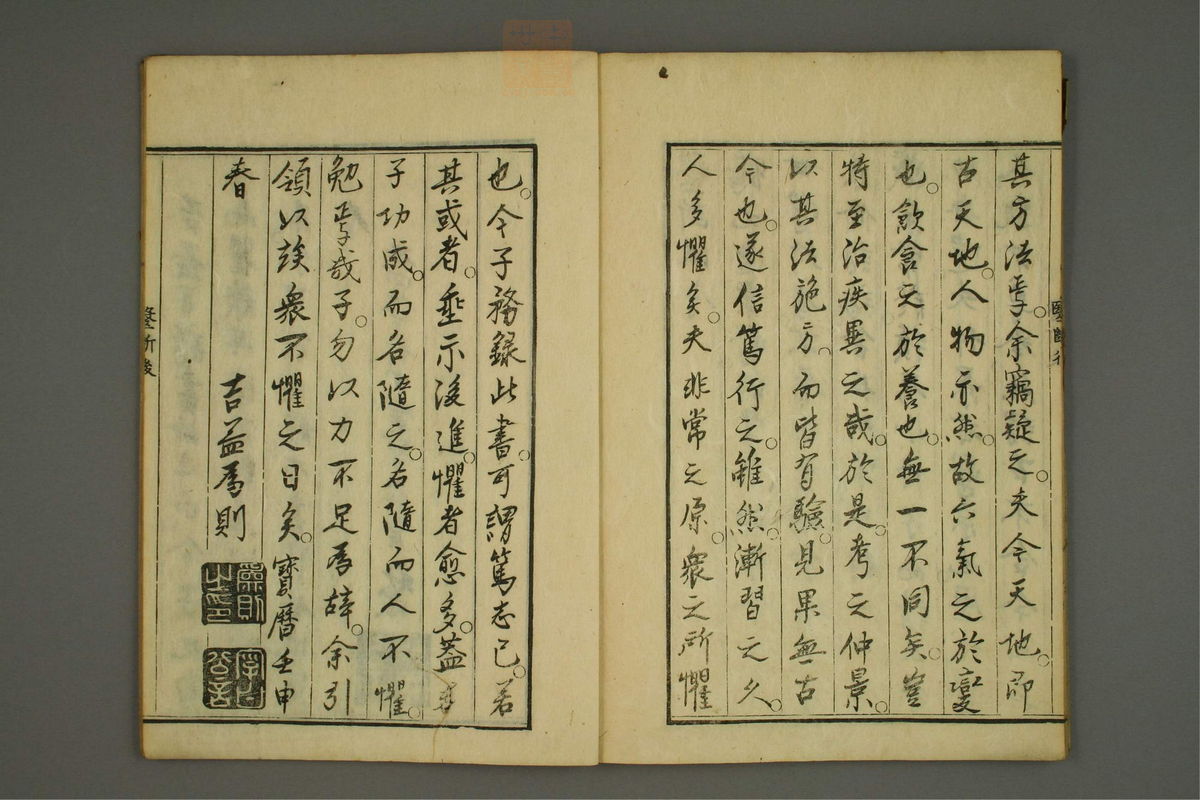 其方法焉。余竊疑之。夫今天地。即
古天地。人物亦然。故六氣之於變
也。飲食之於養也。無一不同矣。豈
特至治疾異之哉。於是。考之仲景。
以其法施方。而皆有驗。見果無古
今也。遂信篤行之。雖然。漸習之久。
人多懼矣。夫非常之原。衆之所懼
也。今子務錄此書。可謂篤志已。若
其或者。垂示後進。懼者愈多。蓋
子功成。而名隨之。名隨而人不懼。
勉焉哉。子勿以力不足為辞。余引
領以竢衆不懼之日矣。寶曆壬申
春
吉益為則
為則之印
字曰公言
醫斷
醫斷後